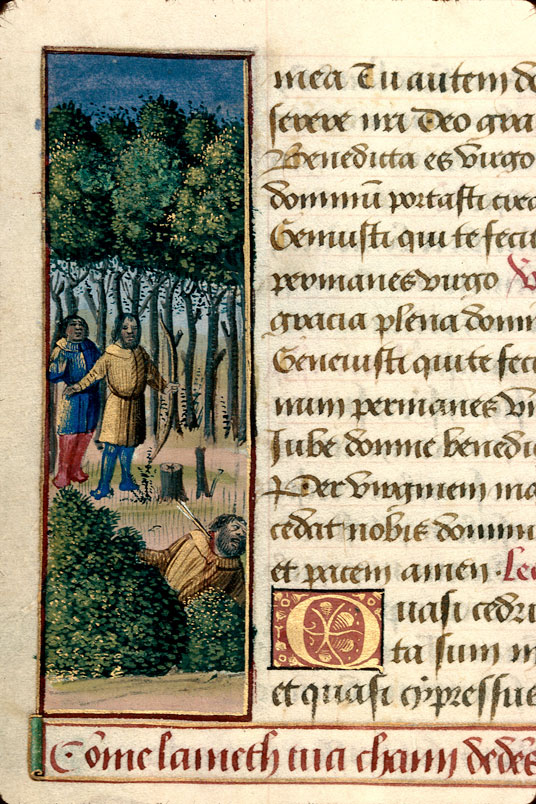 mea Tu autem do
serere nri Deo gra
Benedicta es virgo
dominū portasti crea
Genuisti qui te fecit
permanes virgo V
gracia plena domin
Genuisti qui te feci
num permanes vir
Jube domne benedi
Per virginem ma
cedat nobis dominu
et pacem amen. Lec
Quasi cedru
ta sum in
et quasi cypressus
Cōme lameth tua chayn dedēs